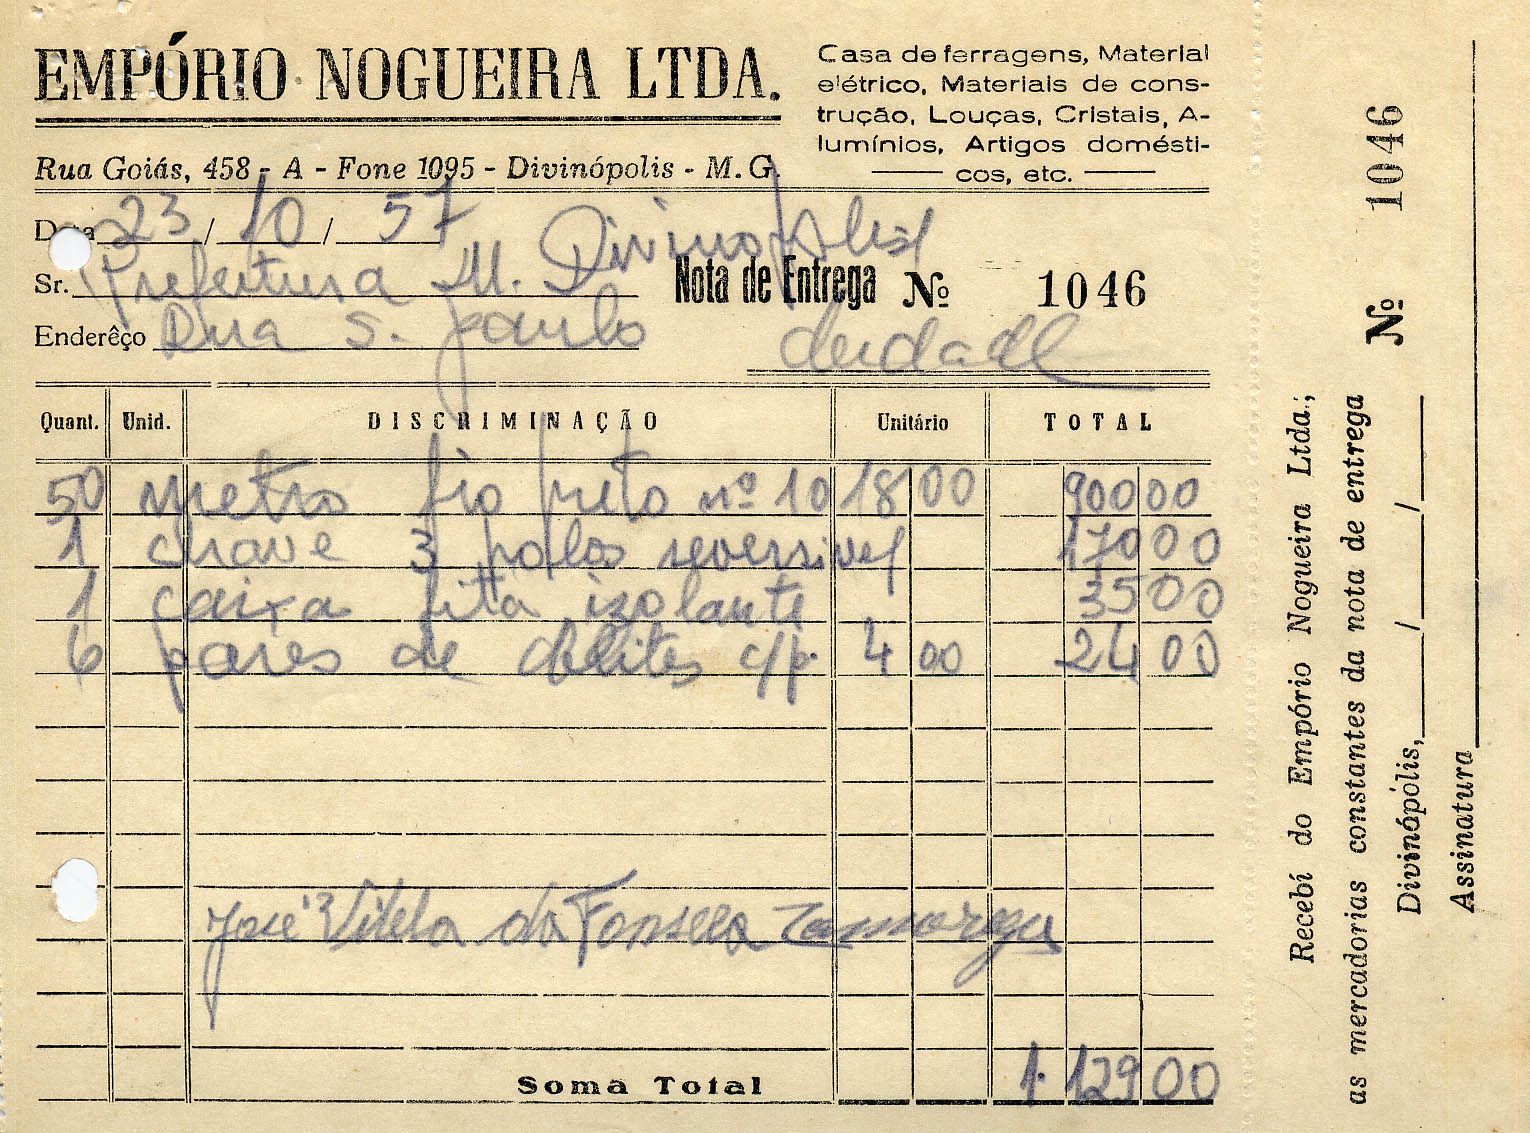 EMPÓRIO NOGUEIRA LTDA.
Casa de ferragens, Material
elétrico, Materiais de cons-
trução, Louças, Cristais, A-
lumínios, Artigos domésti-
cos, etc.
Rua Goiás, 458 - A - Fone 1095 - Divinópolis - M. G.
Data 23 / 10 / 57
Sr. Prefeitura M. Divinópolis
Nota de Entrega Nº 1046
Enderêço Rua S. Paulo
Quant. Unid. DISCRIMINAÇÃO Unitário TOTAL
50 metro fio preto nº 10 18 00 900 00
1 chave 3 polos reversivel 170 00
1 caixa fita izolante 35 00
6 pares de c/p. 4 00 24 00
José Vilela da Fonseca
Soma Total 1.129 00
Recebí do Empório Nogueira Ltda.,
as mercadorias constantes da nota de entrega Nº 1046
Divinópolis, / /
Assinatura